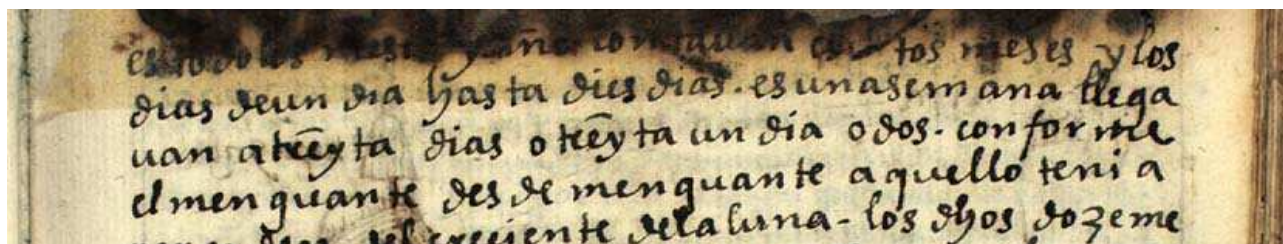 es todo los mes y año contauan estos meses y los
dias de un dia hasta dies dias. es una semana llega
uan a trẽyta dias o trẽyta un dia o dos. conforme
el menguante desde menguante aquello teni a
del creciente de la luna - los dhos dozeme